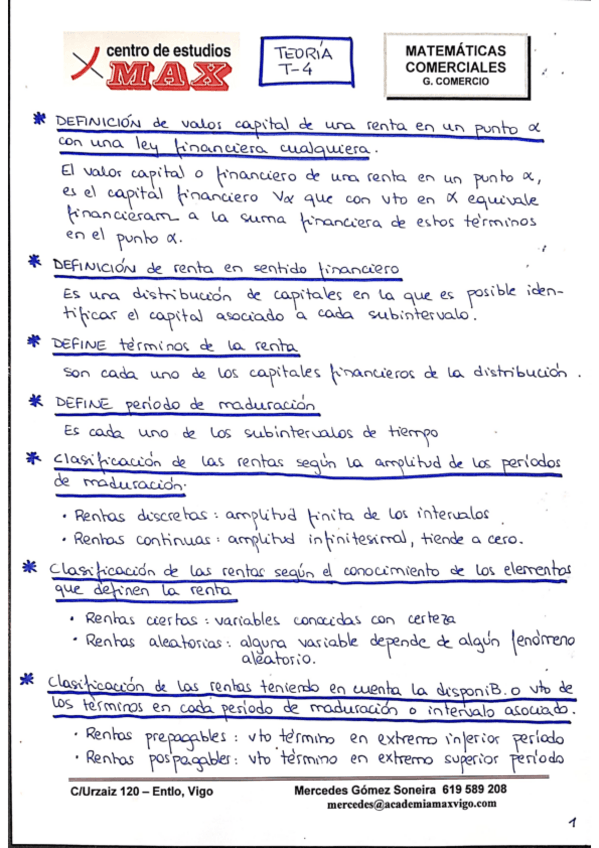 centro de estudios
MAX
TEORÍA
T-4
MATEMÁTICAS
COMERCIALES
G. COMERCIO
* DEFINICIÓN de valos capital de una renta en un punto α
con una ley financiera cualquiera.
El valor capital o financiero de una renta en un punto α,
es el capital financiero Vα que con vto en α equivale
financieram a la suma financiera de estos términos
en el punto α.
* DEFINICIÓN de renta en sentido financiero
Es una distribución de capitales en la que es posible iden-
tificar el capital asociado a cada subintervalo.
* DEFINE términos de la renta
son cada uno de los capitales financieros de la distribución.
* DEFINE período de maduración
Es cada uno de los subintervalos de tiempo
* Clasificación de las rentas según la amplitud de los períodos
de maduración.
· Rentas discretas: amplitud finita de los intervalos
· Rentas continuas: amplitud infinitesimal, tiende a cero.
* Clasificación de las rentas según el conocimiento de los elementos
que definen la renta
· Rentas ciertas: variables conocidas con certeza
· Rentas aleatorias: alguna variable depende de algún fenómeno
aleatorio.
* Clasificación de las rentas teniendo en cuenta la disponiB. o vto de
los términos en cada período de maduración o intervalo asociado.
· Rentas prepagables: vto término en extremo inferior período
· Rentas pospagables: vto término en extremo superior período
C/Urzaiz 120 – Entlo, Vigo
Mercedes Gómez Soneira 619 589 208
mercedes@academiamaxvigo.com
1